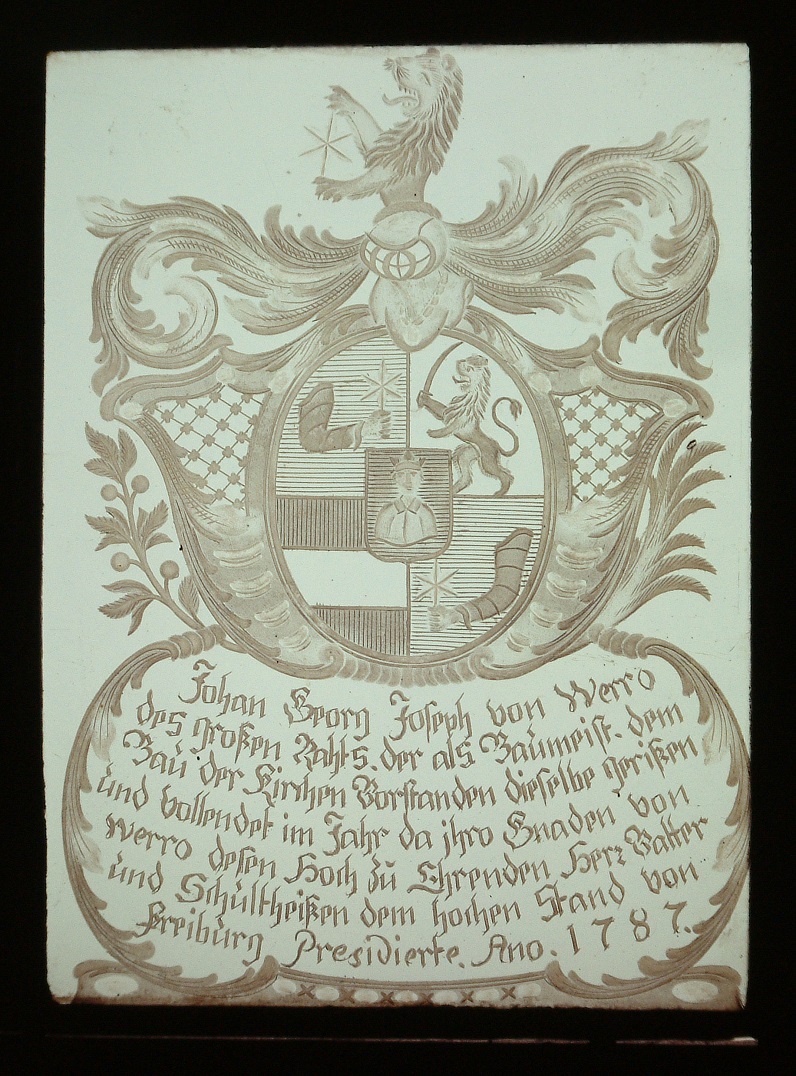 Johan Georg Joseph von Werro
des großen Rahts. der als Baumeist. dem
Bau der Kirchen Vorstanden dieselbe gerißen
und vollendet im Jahr da jhro Gnaden von
Werro desen Hoch zu Ehrenden Herr Vatter
und Schultheißen dem hochen Stand von
Freiburg Presidierte. Ano. 1787.